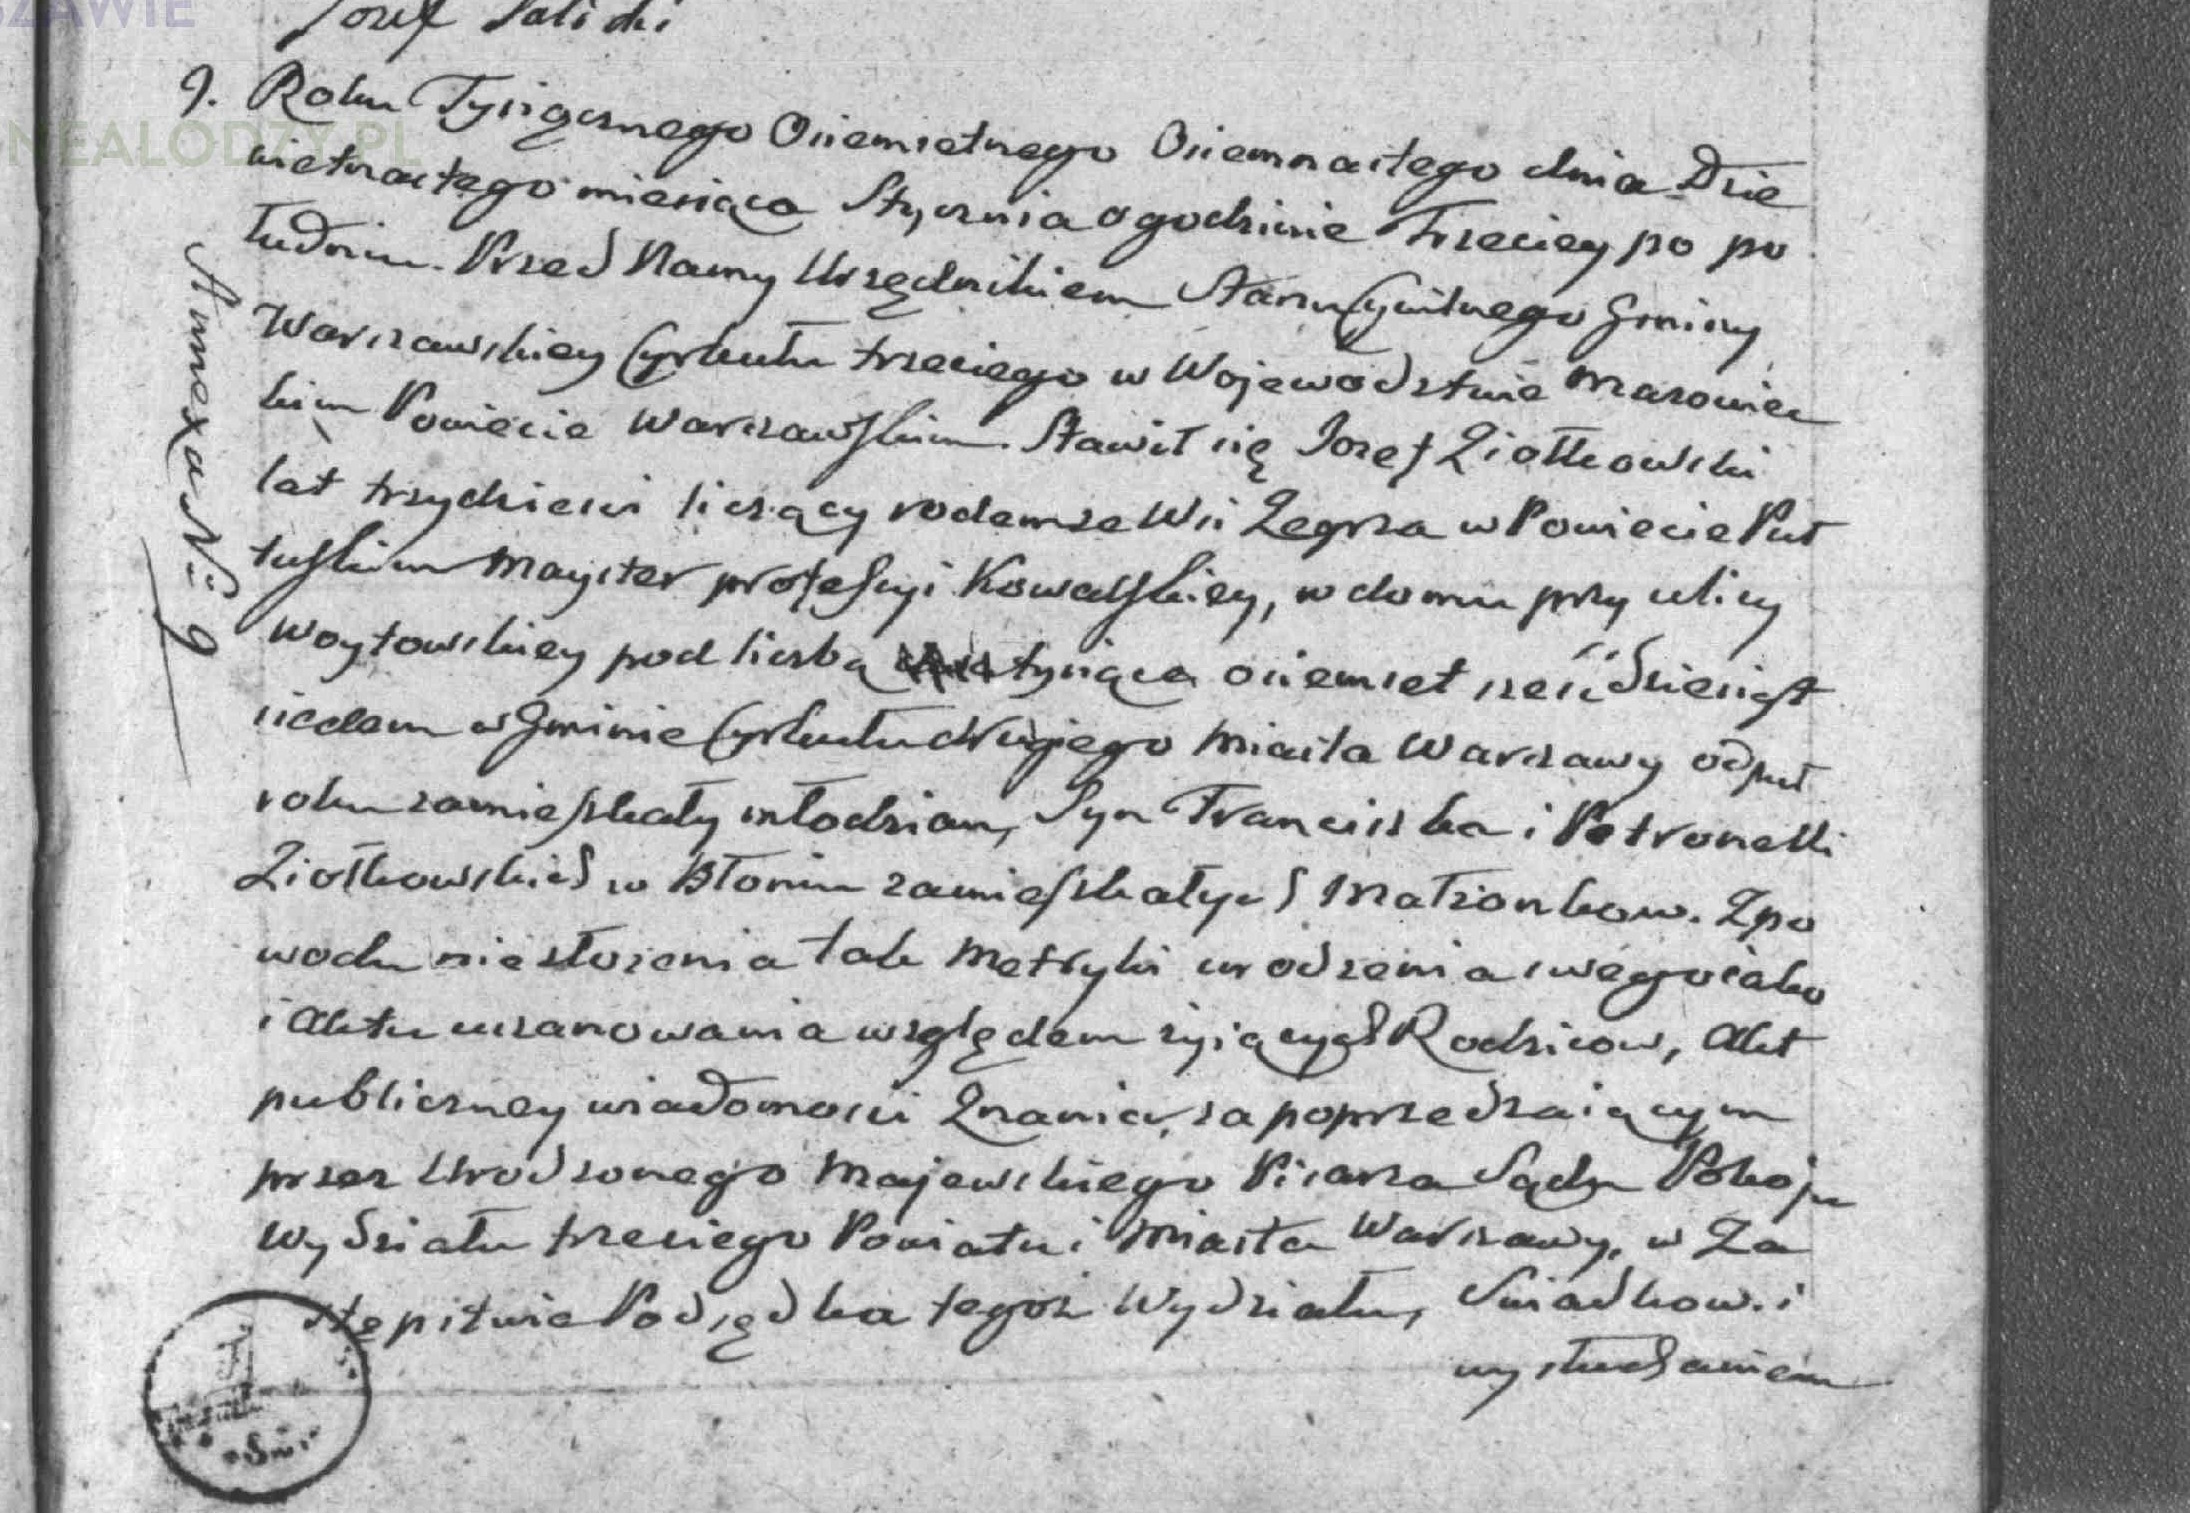 SZAWIE
Jozef Salicki
NEALODZY.PL
9. Roku Tysiącznego Osiemsetnego Osiemnastego dnia Dzie
wietnastego miesiąca Stycznia o godzinie Trzeciey po po
łudniu. Przed Namy Urzędnikiem Stanu Cywilnego Gminy
Warszawskiey Cyrkułu trzeciego w Wojewodztwie Mazowiec
kim Powiecie Warszawskim. Stawił się Jozef Ziołkowski
lat trzydziesci liczący rodem ze Wsi Zegrza w Powiecie Puł
tuskim Mayster profesyi Kowalskiey, w domu przy ulicy
Woytowskiey pod liczbą tysiąca osiemset sześćdziesiąt
siedem w Gminie Cyrkułu drugiego Miasta Warszawy od puł
roku zamieszkały młodzian, Syn Franciszka i Petronelli
Ziołkowskich w Błoniu zamieszkałych Małzonkow. Z po
wodu nie złozenia tak Metryki urodzenia swego iako
i Aktu uszanowania względem zyiących Rodzicow, Akt
publiczney wiadomosci Znania, za poprzedzaiącym
przez Urodzonego Majewskiego Pisarza Sądu Pokoju
Wydziału trzeciego Powiatu i Miasta Warszawy, w Za
stępstwie Podsędka tegoz Wydziału, Swiadkow. i
wysłuchaniem
Annexa No 9